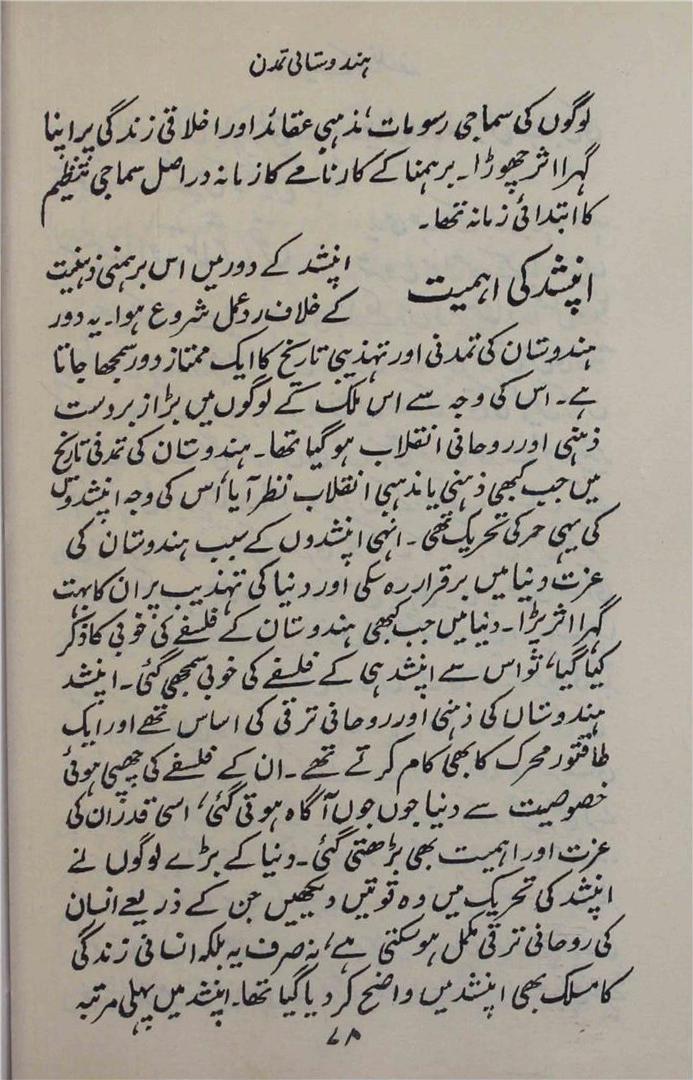 ہندوستانی تمدن
لوگوں کی سماجی رسومات، مذہبی عقائد اور اخلاقی زندگی پر اپنا
گہرا اثر چھوڑا۔ برہمنا کے کارنامے کا زمانہ دراصل سماجی تنظیم
کا ابتدائی زمانہ تھا۔
اپنشد کی اہمیت
اپنشد کے دور میں اس برہمنی ذہنیت
کے خلاف ردعمل شروع ہوا۔ یہ دور
ہندوستان کی تمدنی اور تہذیبی تاریخ کا ایک ممتاز دور سمجھا جاتا
ہے۔ اس کی وجہ سے اس ملک کے لوگوں میں بڑا زبردست
ذہنی اور روحانی انقلاب ہوگیا تھا۔ ہندوستان کی تمدنی تاریخ
میں جب کبھی ذہنی یا مذہبی انقلاب نظر آیا، اس کی وجہ اپنشدوں
کی یہی تحریک تھی۔ انہی اپنشدوں کے سبب ہندوستان کی
عزت دنیا میں برقرار رہ سکی اور دنیا کی تہذیب پر ان کا بہت
گہرا اثر پڑا۔ دنیا میں جب کبھی ہندوستان کے فلسفے کی خوبی کا ذکر
کیا گیا، تو اس سے اپنشد ہی کے فلسفے کی خوبی سمجھی گئی۔ اپنشد
ہندوستاں کی ذہنی اور روحانی ترقی کی اساس تھے اور ایک
طاقتور محرک کا بھی کام کرتے تھے۔ ان کے فلسفے کی چھپی ہوئی
خصوصیت سے دنیا جوں جوں آگاہ ہوتی گئی، اسی قدر ان کی
عزت اور اہمیت بھی بڑھتی گئی۔ دنیا کے بڑے لوگوں نے
اپنشد کی تحریک میں وہ قوتیں دیکھیں جن کے ذریعے انسان
کی روحانی ترقی مکمل ہوسکتی ہے، نہ صرف یہ بلکہ انسانی زندگی
کا مسلک بھی اپنشد میں واضح کردیا گیا تھا۔ اپنشد میں پہلی مرتبہ
۷۸